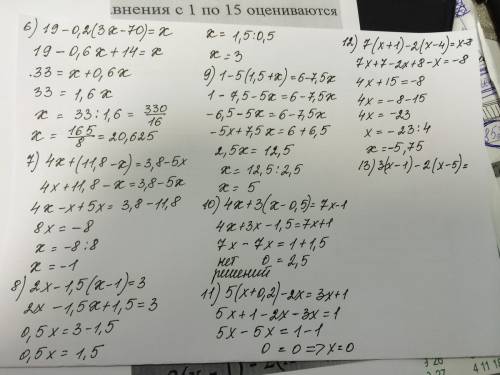 внения с 1 по 15 оцениваются
6) 19 - 0,2(3x-70) = x
19 - 0,6x + 14 = x
33 = x + 0,6x
33 = 1,6x
x = 33 : 1,6 = 330/16
x = 165/8 = 20,625
7) 4x + (11,8 - x) = 3,8 - 5x
4x + 11,8 - x = 3,8 - 5x
4x - x + 5x = 3,8 - 11,8
8x = -8
x = -8 : 8
x = -1
8) 2x - 1,5(x-1) = 3
2x - 1,5x + 1,5 = 3
0,5x = 3 - 1,5
0,5x = 1,5
x = 1,5 : 0,5
x = 3
9) 1 - 5(1,5 + x) = 6 - 7,5x
1 - 7,5 - 5x = 6 - 7,5x
-6,5 - 5x = 6 - 7,5x
-5x + 7,5x = 6 + 6,5
2,5x = 12,5
x = 12,5 : 2,5
x = 5
10) 4x + 3(x - 0,5) = 7x - 1
4x + 3x - 1,5 = 7x + 1
7x - 7x = 1 + 1,5
нет 0 = 2,5
решений
11) 5(x + 0,2) - 2x = 3x + 1
5x + 1 - 2x - 3x = 1
5x - 5x = 1 - 1
0 = 0 => x = 0
12) 7(x+1) - 2(x-4) = x-8
7x + 7 - 2x + 8 - x = -8
4x + 15 = -8
4x = -8 - 15
4x = -23
x = -23 : 4
x = -5,75
13) 3(x-1) - 2(x-5) =